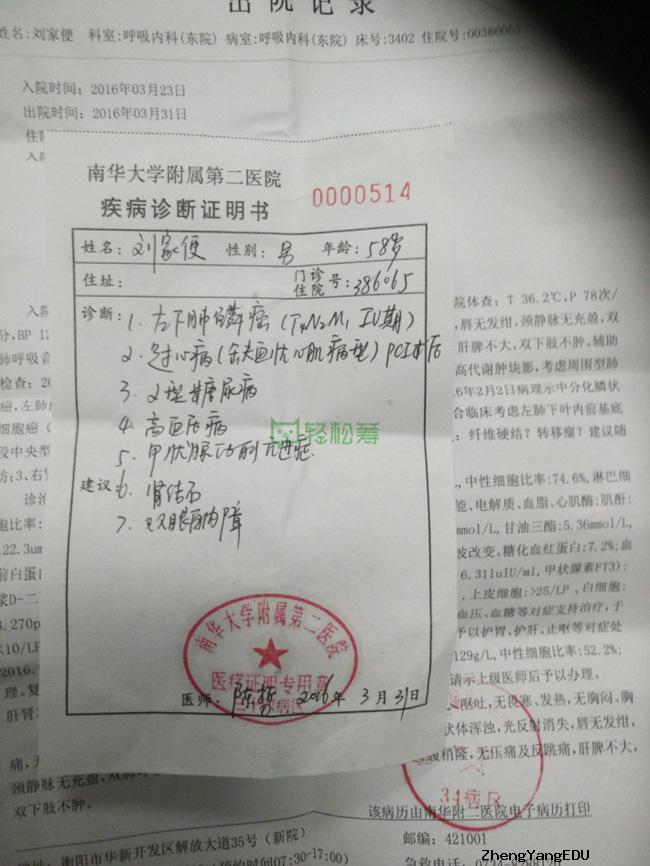 出院记录
姓名:刘家便 科室:呼吸内科(东院) 病室:呼吸内科(东院) 床号:3402 住院号:00386065
入院时间: 2016年03月23日
出院时间: 2016年03月31日
南华大学附属第二医院
0000514
疾病诊断证明书
姓名: 刘家便 性别: 男 年龄: 58岁
住址: 门诊住院号: 386065
诊断: 1. 左下肺鳞癌 (T4N2M1 IV期)
2. 冠心病 (缺血性心肌病型) PCI术后
3. 2型糖尿病
4. 高血压病
轻松筹
5. 甲状腺功能亢进症
建议: 6. 肾结石
7. 双眼白内障
南华大学附属第二医院
医疗证明专用章
医师: 2016年 3月31日
院体查: T 36.2℃,P 78次/
,唇无发绀,颈静脉无充盈,双
肝脾不大,双下肢不肿,辅助
高代谢肿块影,考虑周围型肺
6年2月2日病理示中分化鳞状
合临床考虑左肺下叶内前基底
:纤维硬结?转移瘤?建议随
,中性细胞比率:74.6%,淋巴细
能、电解质、血脂、心肌酶:肌酐:
mmol/L,甘油三酯:5.36mmol/L,
波改变。糖化血红蛋白:7.2%;血
6.311uIU/ml,甲状腺素FT3):
,上皮细胞:>25/LP,白细胞:
血压、血糖等对症支持治疗,于
予以护胃、护肝、止呕等对症处
129g/L,中性细胞比率:52.2%;
请示上级医师后予以办理。
呕吐,无畏寒、发热,无胸闷、胸
状体浑浊,光反射消失,唇无发绀,
稍隆,无压痛及反跳痛,肝脾不大,
颈静脉无充盈,双肺
双下肢不肿。
34病区
该病历由南华附二医院电子病历打印
地址: 衡阳市华新开发区解放大道35号(新院) 邮编: 421001
ZhengYangEDU